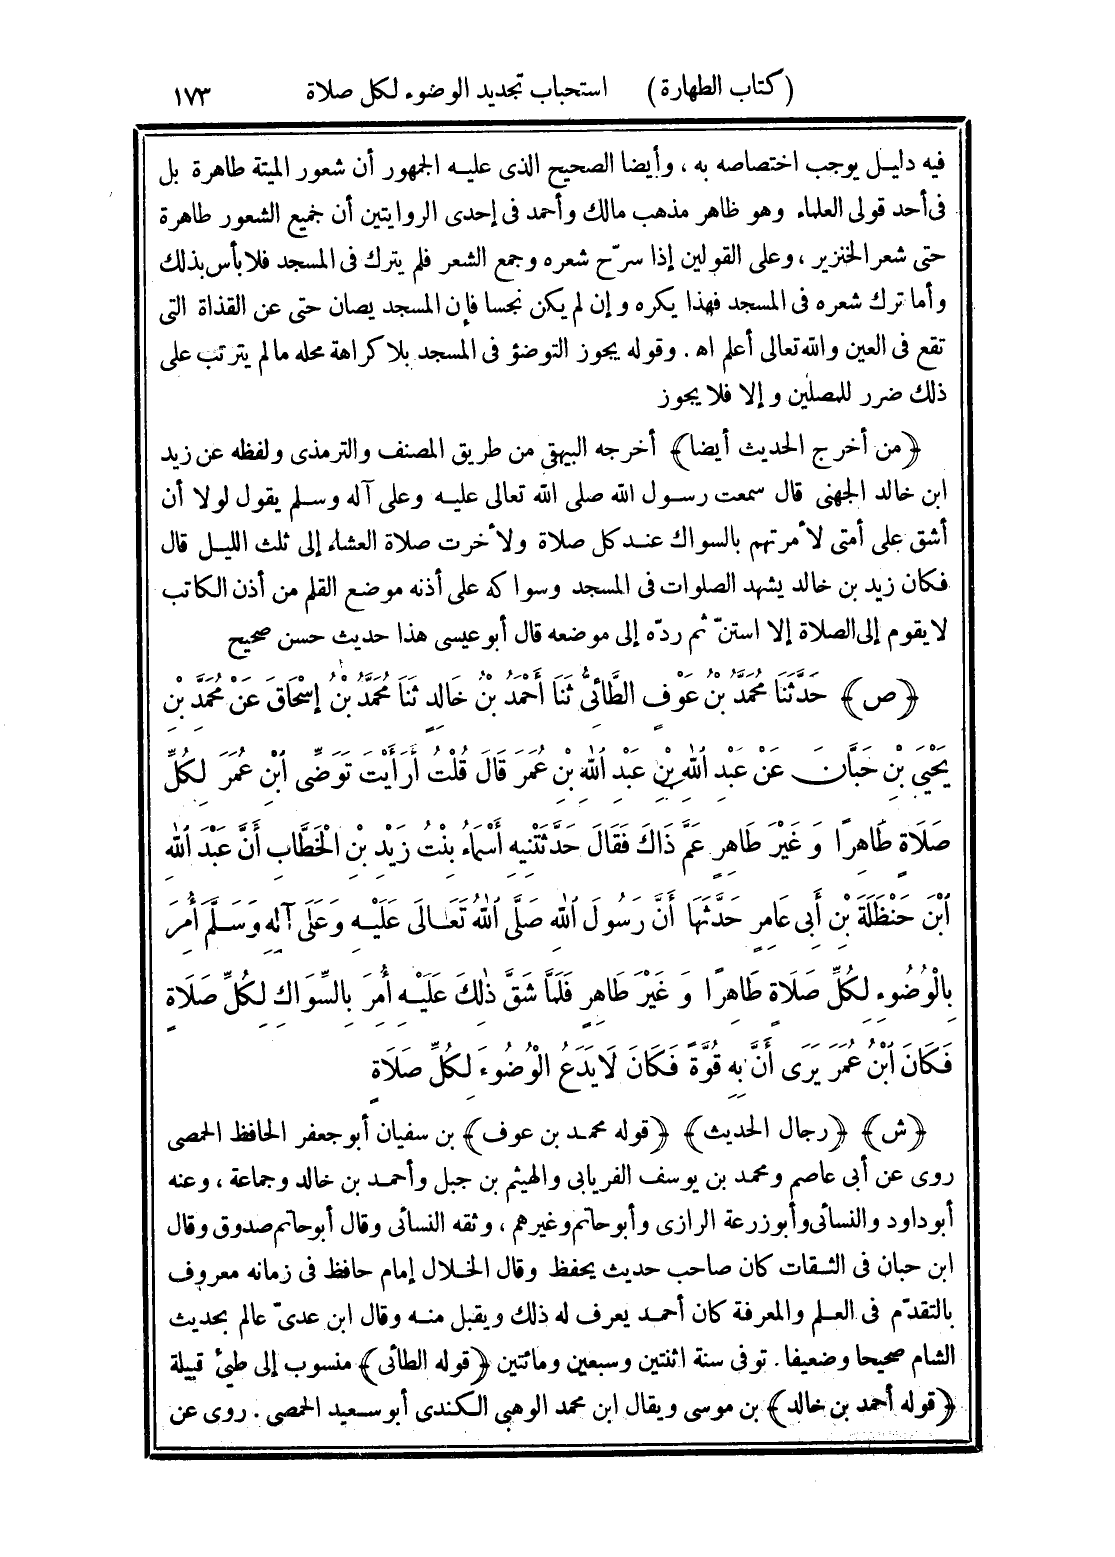 (كتاب الطهارة) استحباب تجديد الوضوء لكل صلاة ١٧٣
فيه دليل يوجب اختصاصه به ، وأيضا الصحيح الذى عليه الجمهور أن شعور الميتة طاهرة بل
فى أحد قولى العلماء وهو ظاهر مذهب مالك وأحمد فى إحدى الروايتين أن جميع الشعور طاهرة
حتى شعر الخنزير ، وعلى القولين إذا سرّح شعره وجمع الشعر فلم يترك فى المسجد فلا بأس بذلك
وأما ترك شعره فى المسجد فهذا يكره وإن لم يكن نجسا فإن المسجد يصان حتى عن القذاة التى
تقع فى العين والله تعالى أعلم اه . وقوله يجوز التوضؤ فى المسجد بلا كراهة محله مالم يترتب على
ذلك ضرر للمصلين وإلا فلا يجوز
﴿من أخرج الحديث أيضا﴾ أخرجه البيهقى من طريق المصنف والترمذى ولفظه عن زيد
ابن خالد الجهنى قال سمعت رسول الله صلى الله تعالى عليه وعلى آله وسلم يقول لولا أن
أشق على أمتى لأمرتهم بالسواك عند كل صلاة ولأخرت صلاة العشاء إلى ثلث الليل قال
فكان زيد بن خالد يشهد الصلوات فى المسجد وسواكه على أذنه موضع القلم من أذن الكاتب
لا يقوم إلى الصلاة إلا استنّ ثم ردّه إلى موضعه قال أبو عيسى هذا حديث حسن صحيح
﴿ص﴾ حَدَّثَنَا مُحَمَّدُ بْنُ عَوْفٍ الطَّائِىُّ ثَنَا أَحْمَدُ بْنُ خَالِدٍ ثَنَا مُحَمَّدُ بْنُ إِسْحَاقَ عَنْ مُحَمَّدِ بْنِ
يَحْيَى بْنِ حَبَّانَ عَنْ عَبْدِ اللهِ بْنِ عَبْدِ اللهِ بْنِ عُمَرَ قَالَ قُلْتُ أَرَأَيْتَ تَوَضِّى ابْنِ عُمَرَ لِكُلِّ
صَلَاةٍ طَاهِرًا وَ غَيْرَ طَاهِرٍ عَمَّ ذَاكَ فَقَالَ حَدَّثَتْنِيهِ أَسْمَاءُ بِنْتُ زَيْدِ بْنِ الْخَطَّابِ أَنَّ عَبْدَ اللهِ
ابْنَ حَنْظَلَةَ بْنِ أَبِى عَامِرٍ حَدَّثَهَا أَنَّ رَسُولَ اللهِ صَلَّى اللهُ تَعَالَى عَلَيْهِ وَعَلَى آلِهِ وَسَلَّمَ أُمِرَ
بِالْوُضُوءِ لِكُلِّ صَلَاةٍ طَاهِرًا وَ غَيْرَ طَاهِرٍ فَلَمَّا شَقَّ ذٰلِكَ عَلَيْهِ أُمِرَ بِالسِّوَاكِ لِكُلِّ صَلَاةٍ
فَكَانَ ابْنُ عُمَرَ يَرَى أَنَّ بِهِ قُوَّةً فَكَانَ لَا يَدَعُ الْوُضُوءَ لِكُلِّ صَلَاةٍ
﴿ش﴾ ﴿رجال الحديث﴾ ﴿قوله محمد بن عوف﴾ بن سفيان أبو جعفر الحافظ الحمصى
روى عن أبى عاصم ومحمد بن يوسف الفريابى والهيثم بن جميل وأحمد بن خالد وجماعة ، وعنه
أبو داود والنسائى وأبو زرعة الرازى وأبو حاتم وغيرهم ، وثقه النسائى وقال أبو حاتم صدوق وقال
ابن حبان فى الثقات كان صاحب حديث يحفظ وقال الخلال إمام حافظ فى زمانه معروف
بالتقدّم فى العلم والمعرفة كان أحمد يعرف له ذلك ويقبل منه وقال ابن عدىّ عالم بحديث
الشام صحيحا وضعيفا . توفى سنة اثنتين وسبعين ومائتين ﴿قوله الطائى﴾ منسوب إلى طيئ قبيلة
﴿قوله أحمد بن خالد﴾ بن موسى ويقال ابن محمد الوهبي الكندى أبو سعيد الحمصى . روى عن